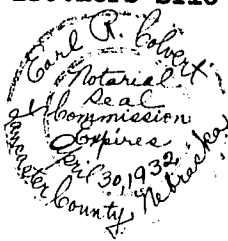 Earl R. Colvert
Notarial
Seal
Commission
Expires
April 30, 1932
Lancaster County, Nebraska